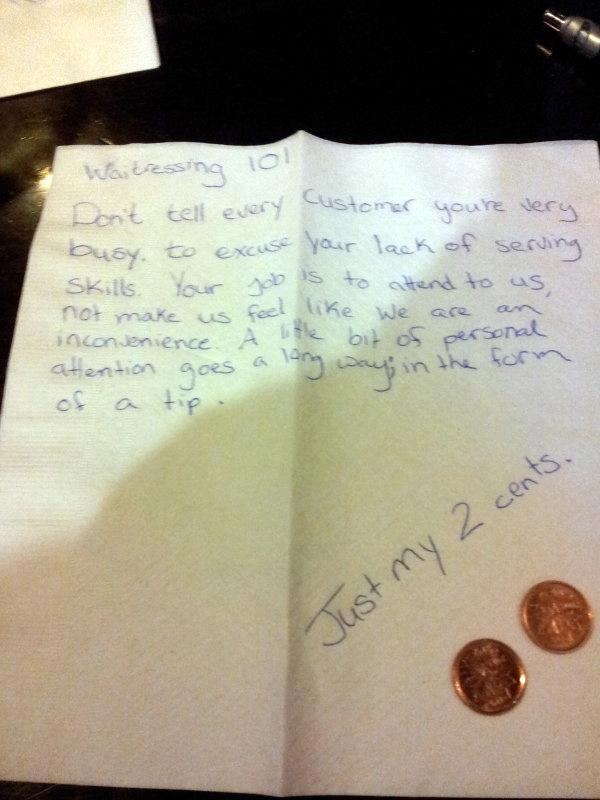 Waitressing 101
Don't tell every customer you're very
busy. to excuse your lack of serving
skills. Your job is to attend to us,
not make us feel like we are an
inconvenience. A little bit of personal
attention goes a long way; in the form
of a tip.
Just my 2 cents.